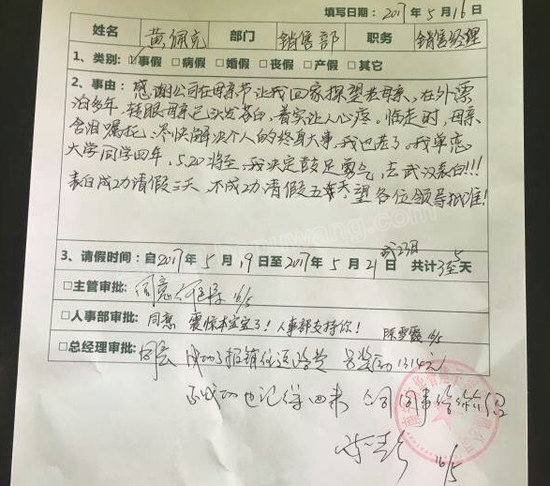 填写日期: 2017年5月16日
姓名 黄佩克 部门 销售部 职务 销售经理
1、类别: 事假 □病假 □婚假 □丧假 □产假 □其它
2、事由: 感谢公司在母亲节让我回家探望老母亲,在外漂
泊多年,转眼母亲已头发苍白,着实让人心疼。临走时,母亲
含泪嘱托,尽快解决个人的终身大事,我也老了,我单恋
大学同学四年,5.20将至,我决定鼓足勇气,去武汉表白!!!
表白成功请假三天,不成功请假五天,望各位领导批准!
或23日
3、请假时间: 自2017年5月19日至2017年5月21日 共计3至5天
□主管审批: 同意 16/5
□人事部审批: 同意 震惊本宝宝了!人事部支持你! 16/5
□总经理审批: 同意 成功了报销往返路费 另奖励1314元
不成功也记得回来 公司同事给你介绍
16/5